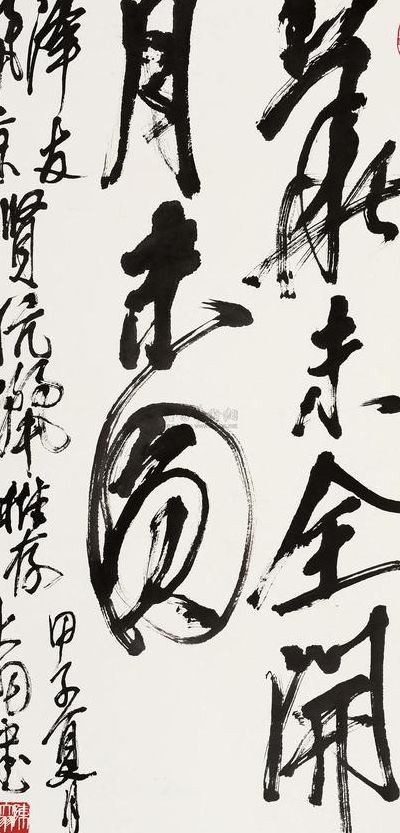 花未全開
月未圓
澤友
賢伉儷雅存
大羽書
甲子夏月